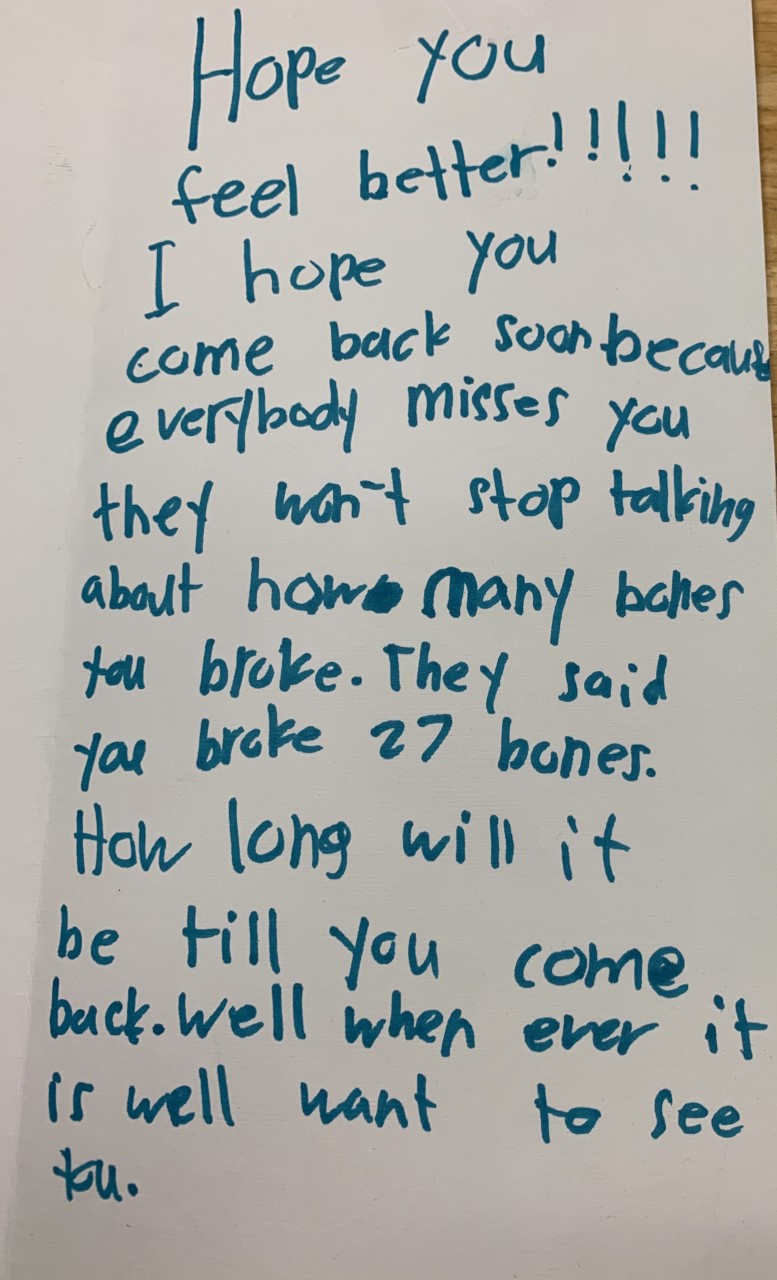 Hope you
feel better!!!!!
I hope you
come back soon because
everybody misses you
they won't stop talking
about how many bones
you broke. They said
you broke 27 bones.
How long will it
be till you come
back. Well when ever it
is well want to see
you.